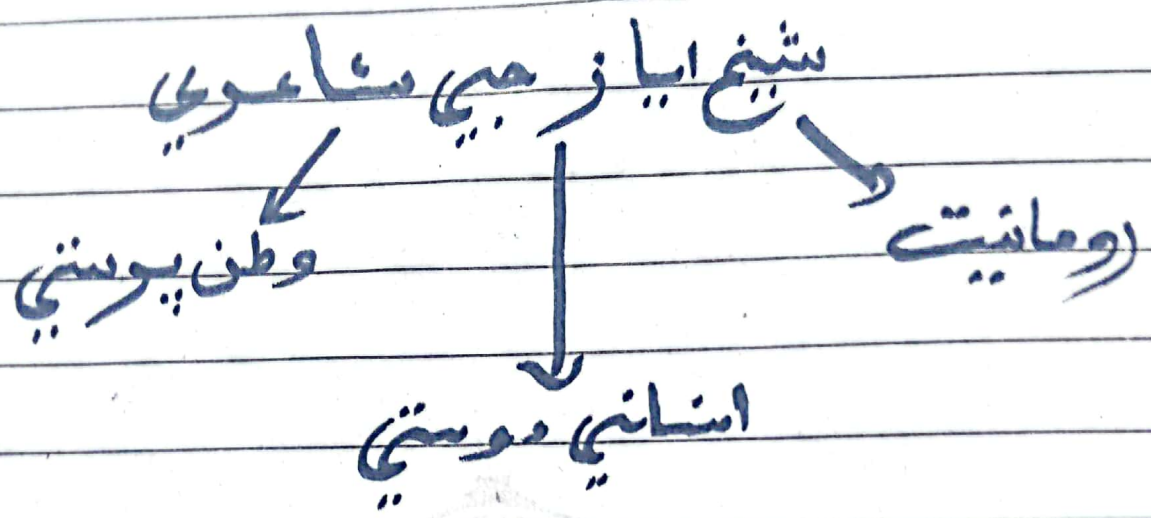 شيخ اياز جي شاعري
رومانيت
وطن پرستي
انساني دوستي